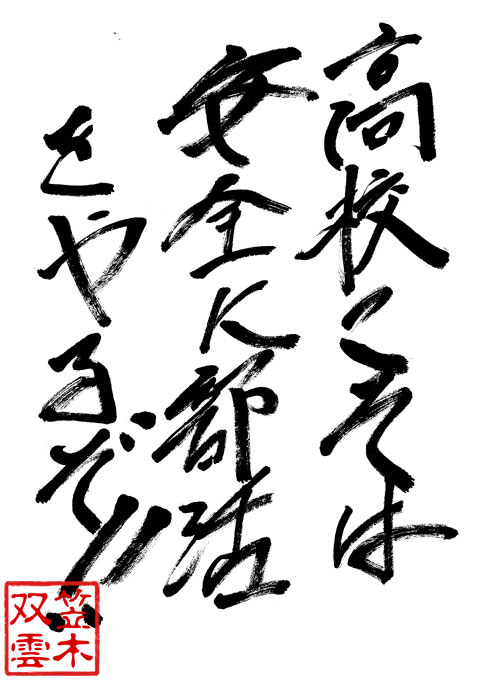 高校こそは
安全に部活
をやるぞ!!
笠木
双雲